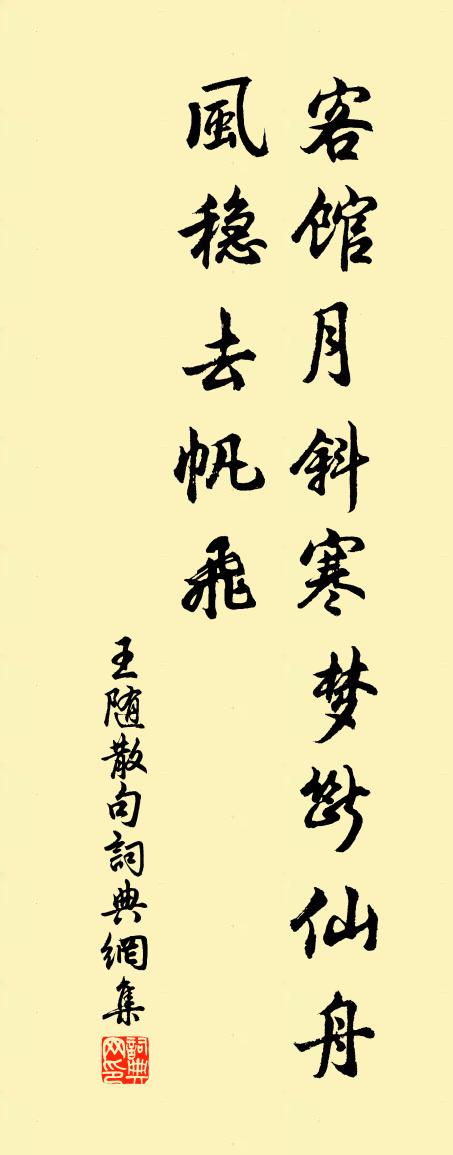 客館月斜寒梦斷仙舟
風穏去帆飛
王随散句詞典網集
詞典网印